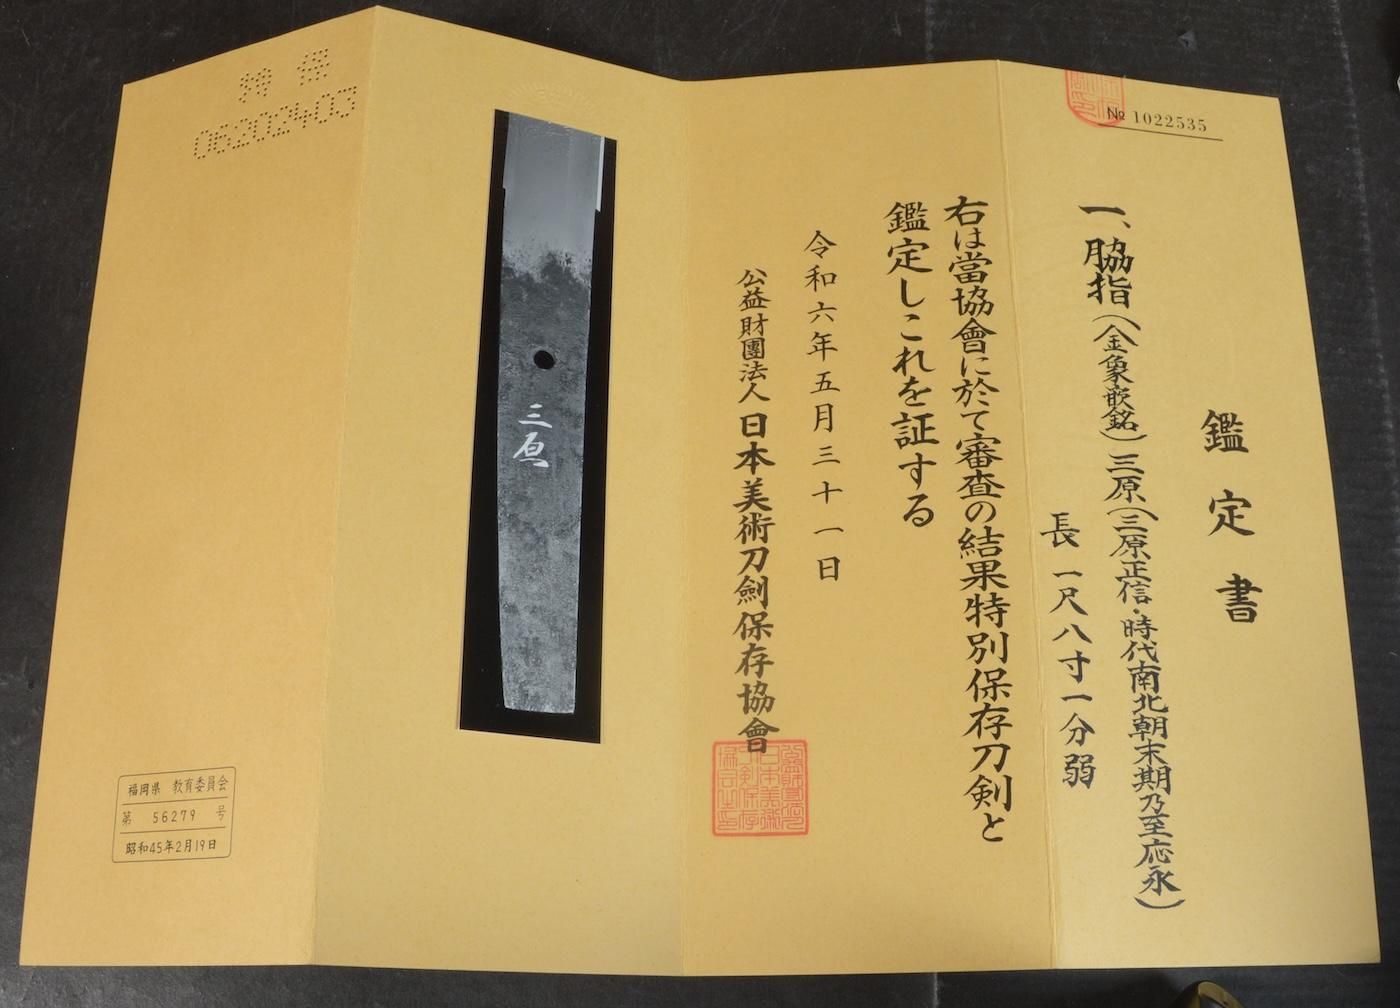 № 1022535
鑑定書
一、脇指(金象嵌銘)三原(三原正信・時代南北朝末期乃至応永)
長一尺八寸一分弱
右は當協會に於て審査の結果特別保存刀剣と
鑑定しこれを証する
令和六年五月三十一日
公益財團法人 日本美術刀劍保存協會
三原
特保
06202403
福岡県 教育委員会
第 56279 号
昭和45年2月19日